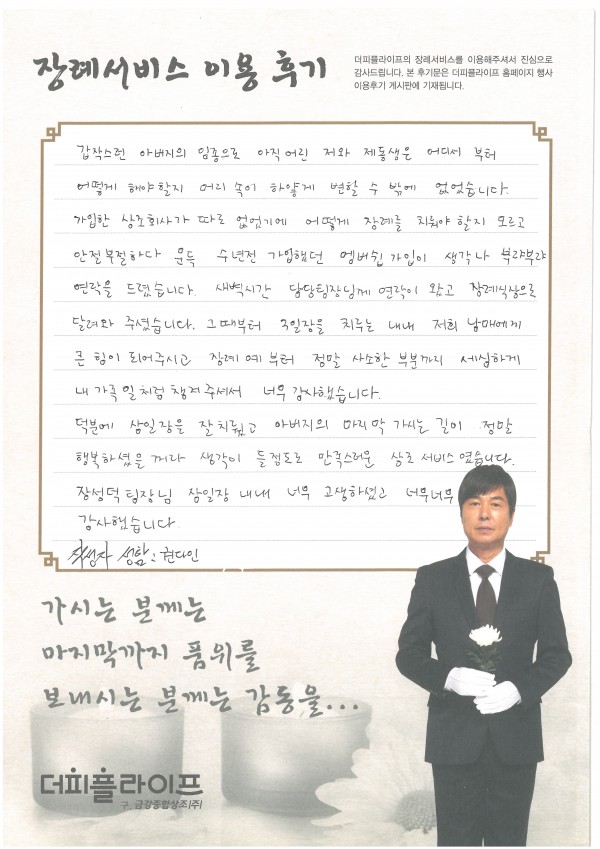 장례서비스 이용 후기
더피플라이프의 장례서비스를 이용해주셔서 진심으로
감사드립니다. 본 후기문은 더피플라이프 홈페이지 행사
이용후기 게시판에 기재됩니다.
갑작스런 아버지의 임종으로 아직 어린 저와 제동생은 어디서 부터
어떻게 해야할지 머리 속이 하얗게 변할 수 밖에 없었습니다.
가입한 상조회사가 따로 없었기에 어떻게 장례를 치뤄야 할지 모르고
안절부절하다 문득 수년전 가입했던 멤버쉽 가입이 생각나 부랴부랴
연락을 드렸습니다. 새벽시간 담당팀장님께 연락이 왔고 장례식장으로
달려와 주셨습니다. 그때부터 3일장을 치루는 내내 저희 남매에게
큰 힘이 되어주시고 장례 예부터 정말 사소한 부분까지 세심하게
내 가족 일처럼 챙겨주셔서 너무 감사했습니다.
덕분에 삼일장을 잘 치뤘고 아버지의 마지막 가시는 길이 정말
행복하셨을 꺼라 생각이 들정도로 만족스러운 상조 서비스 였습니다.
장성덕 팀장님 삼일장 내내 너무 고생하셨고 너무너무
감사했습니다
작성자 성함 : 권다인
가시는 분께는
마지막까지 품위를
보내시는 분께는 감동을...
더피플라이프
구. 금강종합상조(주)